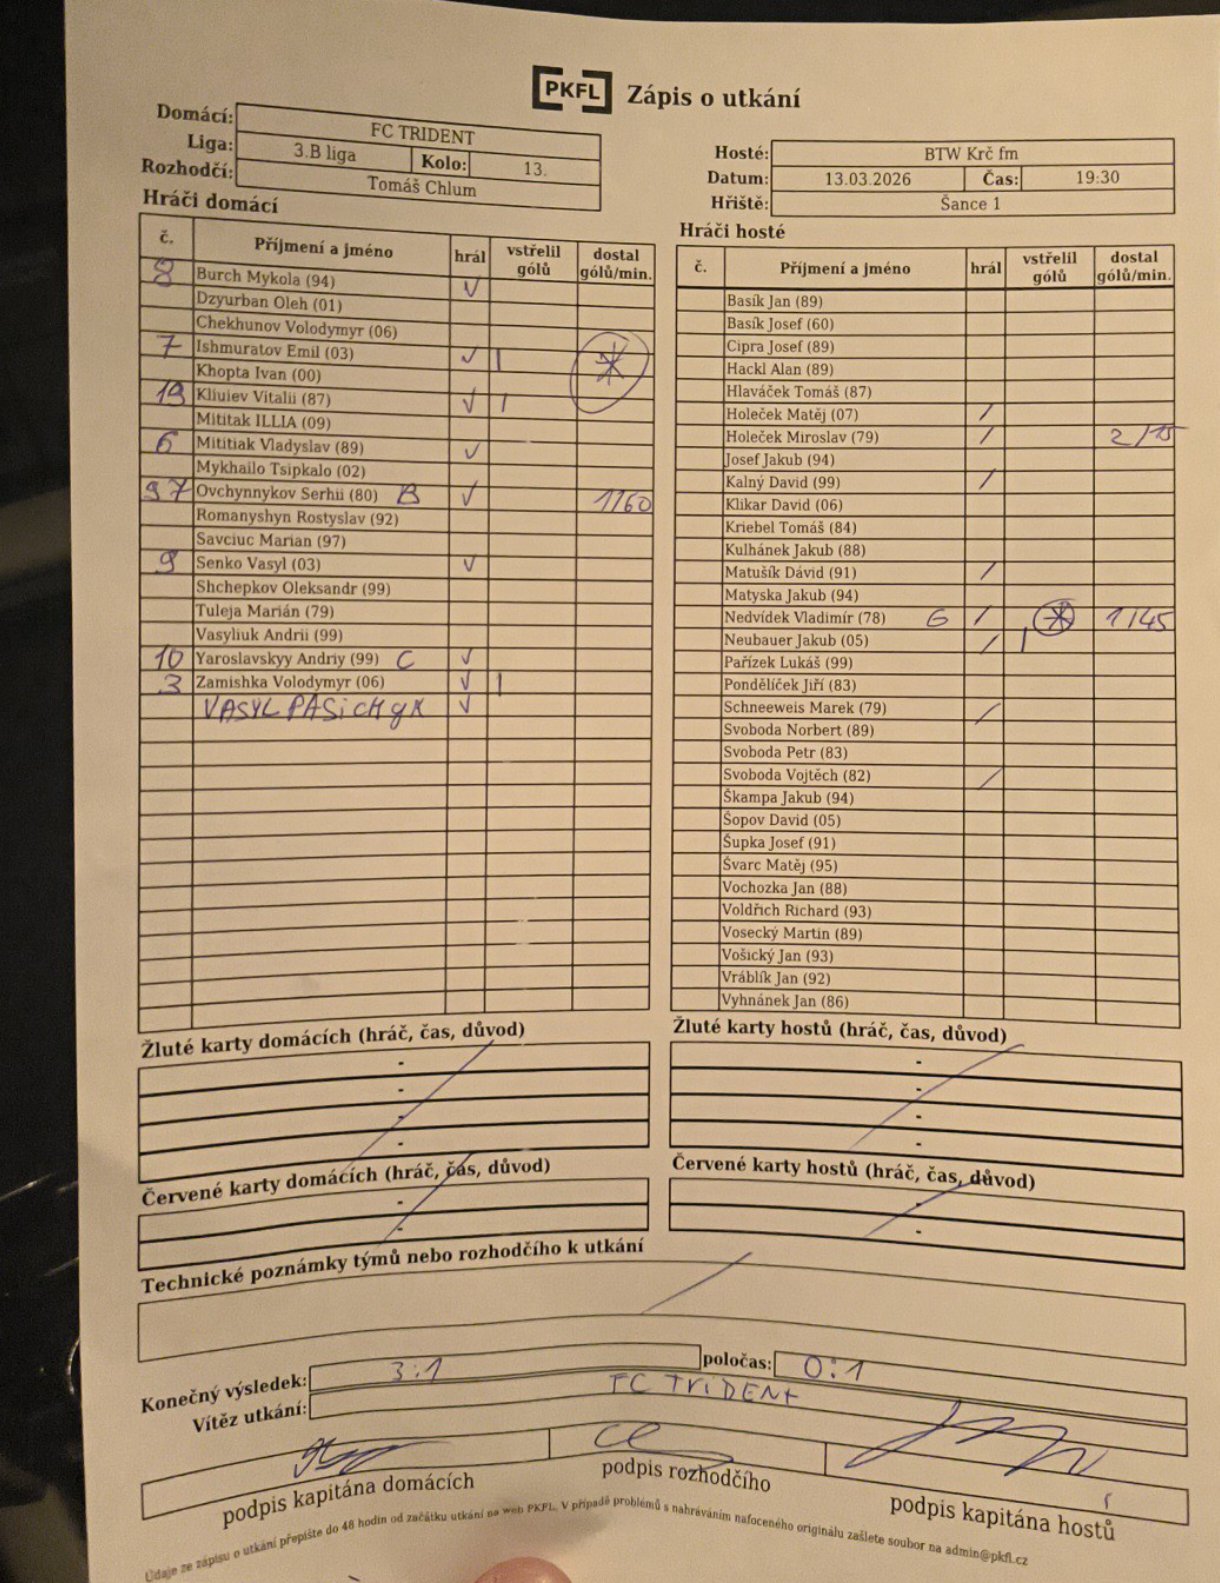 PKFL Zápis o utkání
Domácí: FC TRIDENT
Liga: 3.B liga Kolo: 13.
Rozhodčí: Tomáš Chlum
Hosté: BTW Krč fm
Datum: 13.03.2026 Čas: 19:30
Hřiště: Šance 1
Hráči domácí
č. Příjmení a jméno hrál vstřelil gólů dostal gólů/min.
8 Burch Mykola (94) V
Dzyurban Oleh (01)
Chekhunov Volodymyr (06)
7 Ishmuratov Emil (03) V |
Khopta Ivan (00)
19 Kliuiev Vitalii (87) V |
Mititak ILLIA (09)
6 Mititiak Vladyslav (89) V
Mykhailo Tsipkalo (02)
97 Ovchynnykov Serhii (80) B V 1/60
Romanyshyn Rostyslav (92)
Savciuc Marian (97)
9 Senko Vasyl (03) V
Shchepkov Oleksandr (99)
Tuleja Marián (79)
Vasyliuk Andrii (99)
10 Yaroslavskyy Andriy (99) C V
3 Zamishka Volodymyr (06) V |
VASYL PASICHYK V
Hráči hosté
č. Příjmení a jméno hrál vstřelil gólů dostal gólů/min.
Basík Jan (89)
Basík Josef (60)
Cipra Josef (89)
Hackl Alan (89)
Hlaváček Tomáš (87)
Holeček Matěj (07) /
Holeček Miroslav (79) / 2/15
Josef Jakub (94)
Kalný David (99) /
Klikar David (06)
Kriebel Tomáš (84)
Kulhánek Jakub (88)
Matušík Dávid (91) /
Matyska Jakub (94)
Nedvídek Vladimír (78) G / 1/45
Neubauer Jakub (05) / |
Pařízek Lukáš (99)
Pondělíček Jiří (83)
Schneeweis Marek (79) /
Svoboda Norbert (89)
Svoboda Petr (83)
Svoboda Vojtěch (82) /
Škampa Jakub (94)
Šopov David (05)
Šupka Josef (91)
Švarc Matěj (95)
Vochozka Jan (88)
Voldřich Richard (93)
Vosecký Martin (89)
Vošický Jan (93)
Vráblík Jan (92)
Vyhnánek Jan (86)
Žluté karty domácích (hráč, čas, důvod)
-
-
-
-
Žluté karty hostů (hráč, čas, důvod)
-
-
-
-
Červené karty domácích (hráč, čas, důvod)
-
-
Červené karty hostů (hráč, čas, důvod)
-
-
Technické poznámky týmů nebo rozhodčího k utkání
Konečný výsledek: 3:1 poločas: 0:1
Vítěz utkání: FC TRIDENT
podpis kapitána domácích podpis rozhodčího podpis kapitána hostů
Údaje ze zápisu o utkání přepište do 48 hodin od začátku utkání na web PKFL. V případě problémů s nahráváním nafoceného originálu zašlete soubor na admin@pkfl.cz